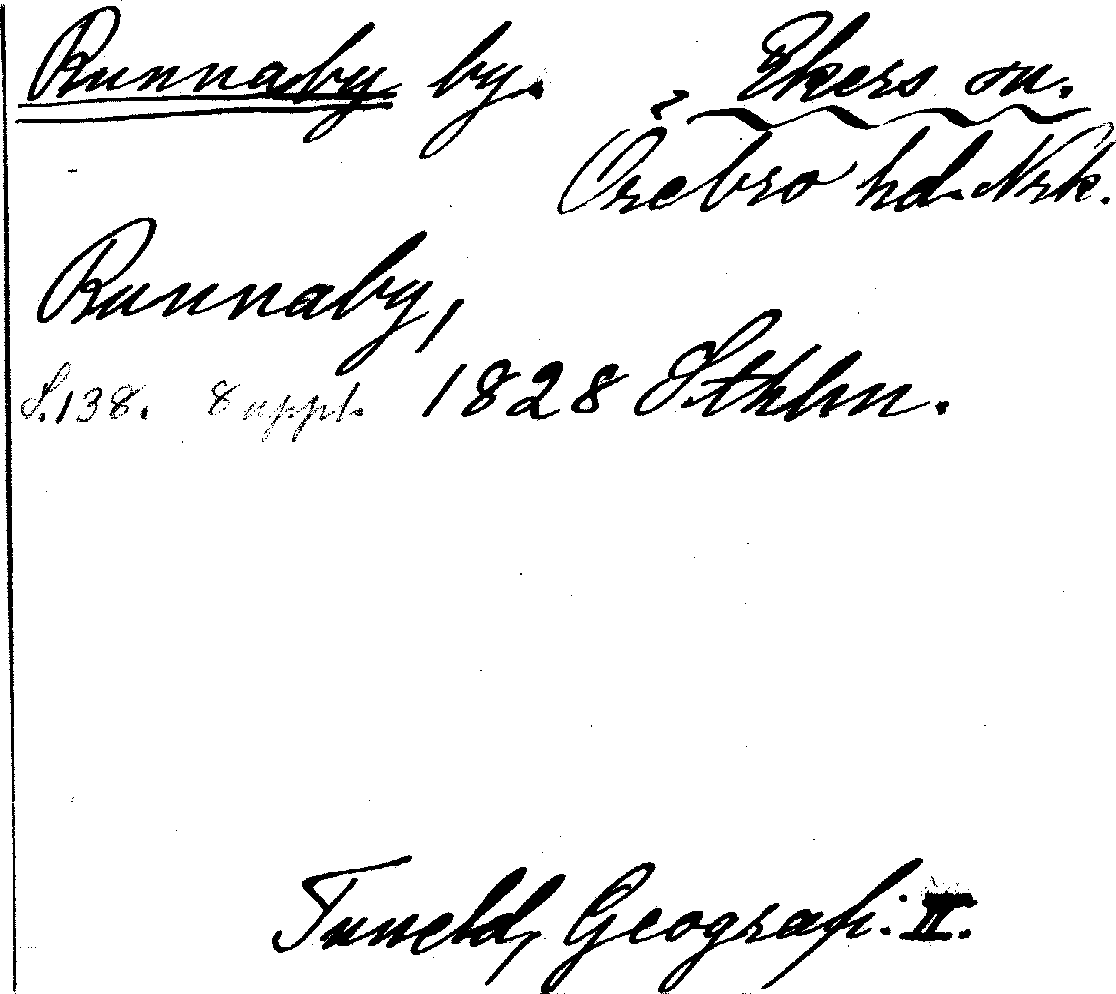 Runnaby by. Ekers sn.
Örebro hd. Nrk.
Runnaby,
S. 138. 8 uppl. 1828 Sthlm.
Tuneld, Geografi. II.